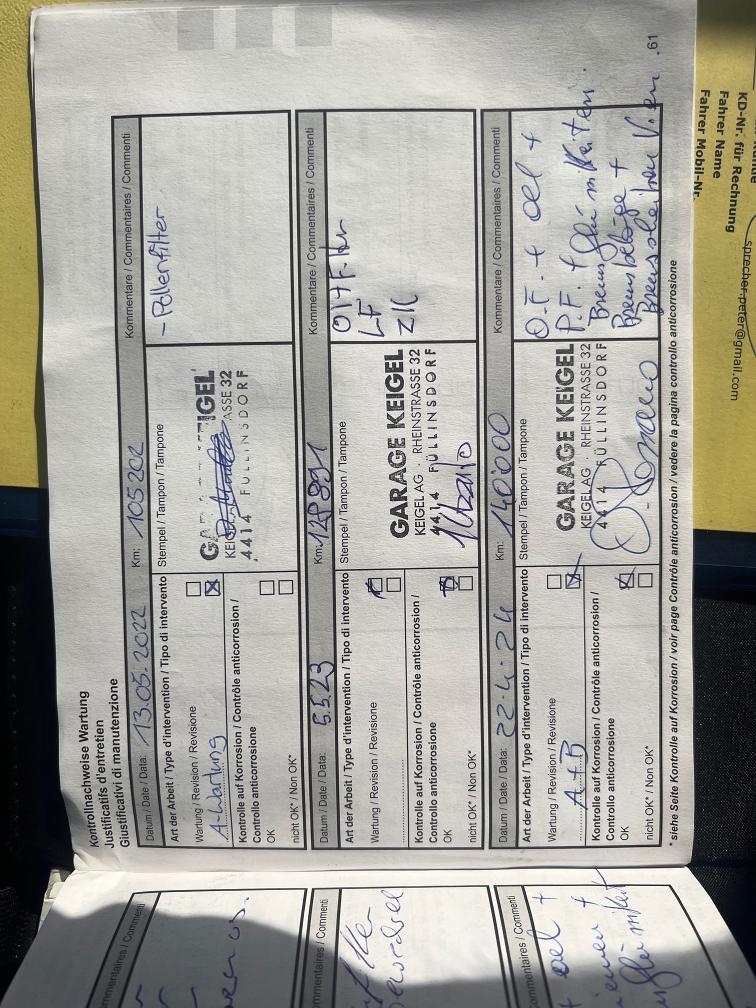 Kontrollnachweise Wartung
Justificatifs d'entretien
Giustificativi di manutenzione
Datum / Date / Data: 13.05.2022 Km: 105202 Kommentare / Commentaires / Commenti
Art der Arbeit / Type d'intervention / Tipo di intervento Stempel / Tampon / Tampone
- Pollenfilter
Wartung / Revision / Revisione
A-Wartung
KEIGEL
ASSE 32
4414 FÜLLINSDORF
Kontrolle auf Korrosion / Contrôle anticorrosion /
Controllo anticorrosione
OK
nicht OK* / Non OK*
Datum / Date / Data: 5.5.23 Km: Kommentare / Commentaires / Commenti
Art der Arbeit / Type d'intervention / Tipo di intervento Stempel / Tampon / Tampone
LF
ZK
Wartung / Revision / Revisione
GARAGE KEIGEL
KEIGEL AG · RHEINSTRASSE 32
4414 FÜLLINSDORF
Kontrolle auf Korrosion / Contrôle anticorrosion /
Controllo anticorrosione
OK
nicht OK* / Non OK*
Datum / Date / Data: 22.4.24 Km: 140'000 Kommentare / Commentaires / Commenti
Art der Arbeit / Type d'intervention / Tipo di intervento Stempel / Tampon / Tampone
O.F. + oel +
P.F. +
Bremsbeläge +
Bremsscheiben
Wartung / Revision / Revisione
A+B
GARAGE KEIGEL
KEIGEL AG · RHEINSTRASSE 32
4414 FÜLLINSDORF
Kontrolle auf Korrosion / Contrôle anticorrosion /
Controllo anticorrosione
OK
nicht OK* / Non OK*
* siehe Seite Kontrolle auf Korrosion / voir page Contrôle anticorrosion / vedere la pagina controllo anticorrosione
61
mmentaires / Commenti
mmentaires / Commenti
mmentaires / Commenti
oel +
KD-Nr. für Rechnung
Fahrer Name
Fahrer Mobil-Nr.
sprecher-peter@gmail.com